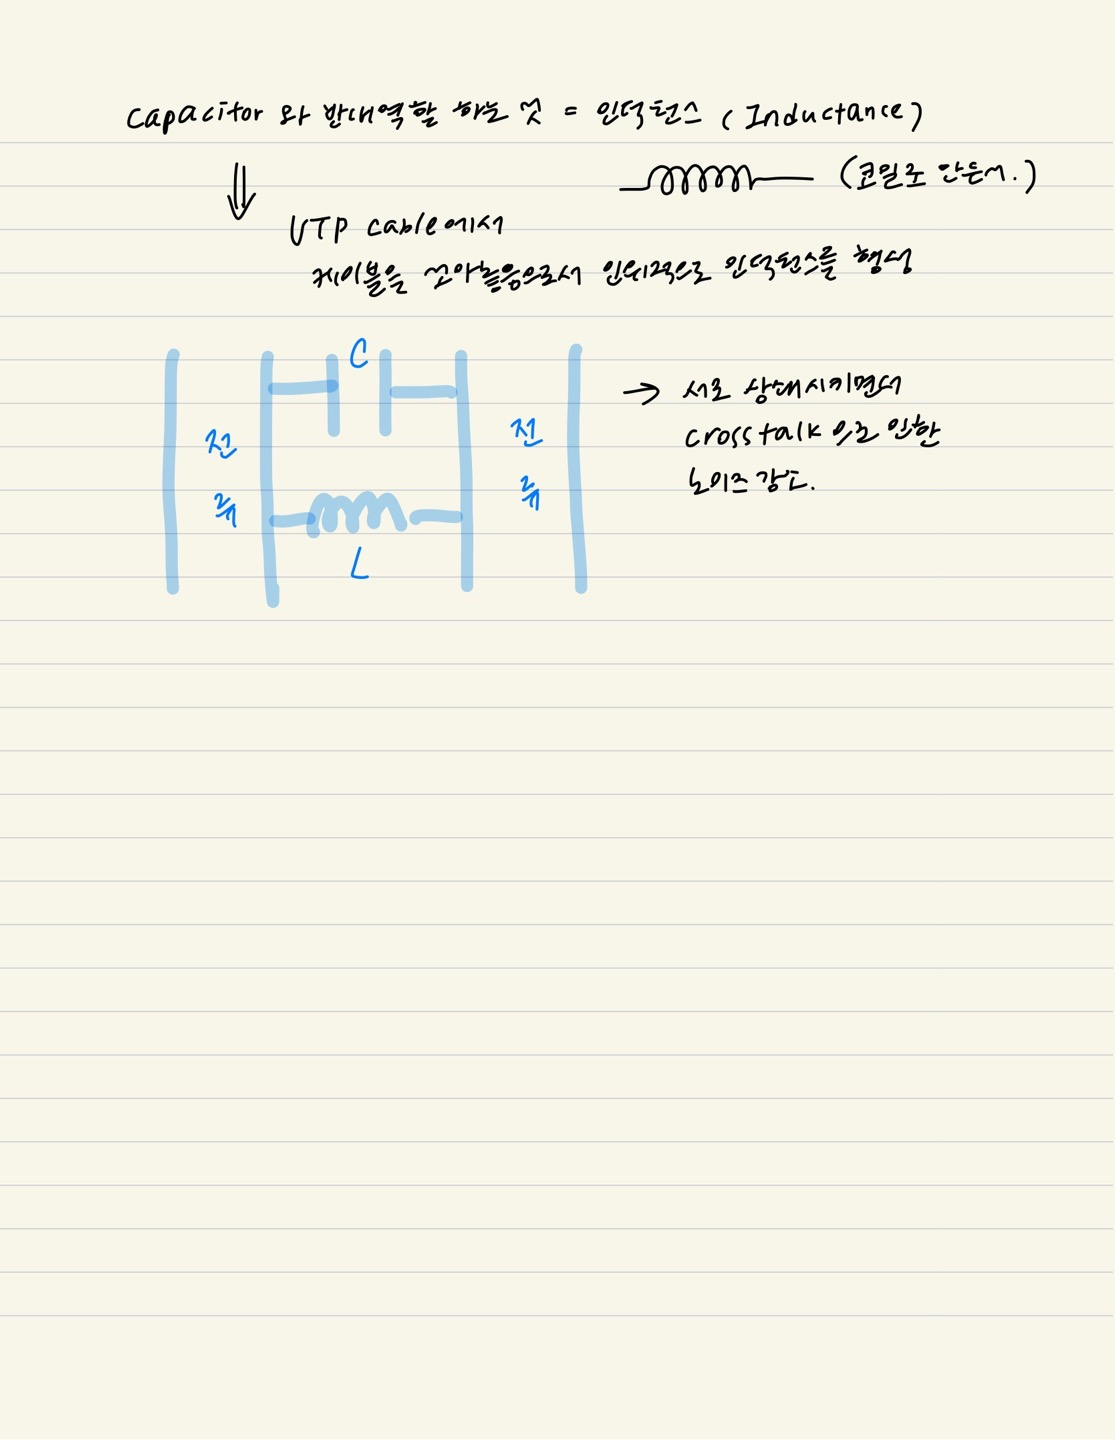 Capacitor 와 반대역할 하는 것 = 인덕턴스 (Inductance)
(코일로 만든거.)
UTP cable에서
케이블을 꼬아놓음으로서 인위적으로 인덕턴스를 형성
C
전류
전류
L
→ 서로 상쇄시키면서
crosstalk 으로 인한
노이즈 감소.